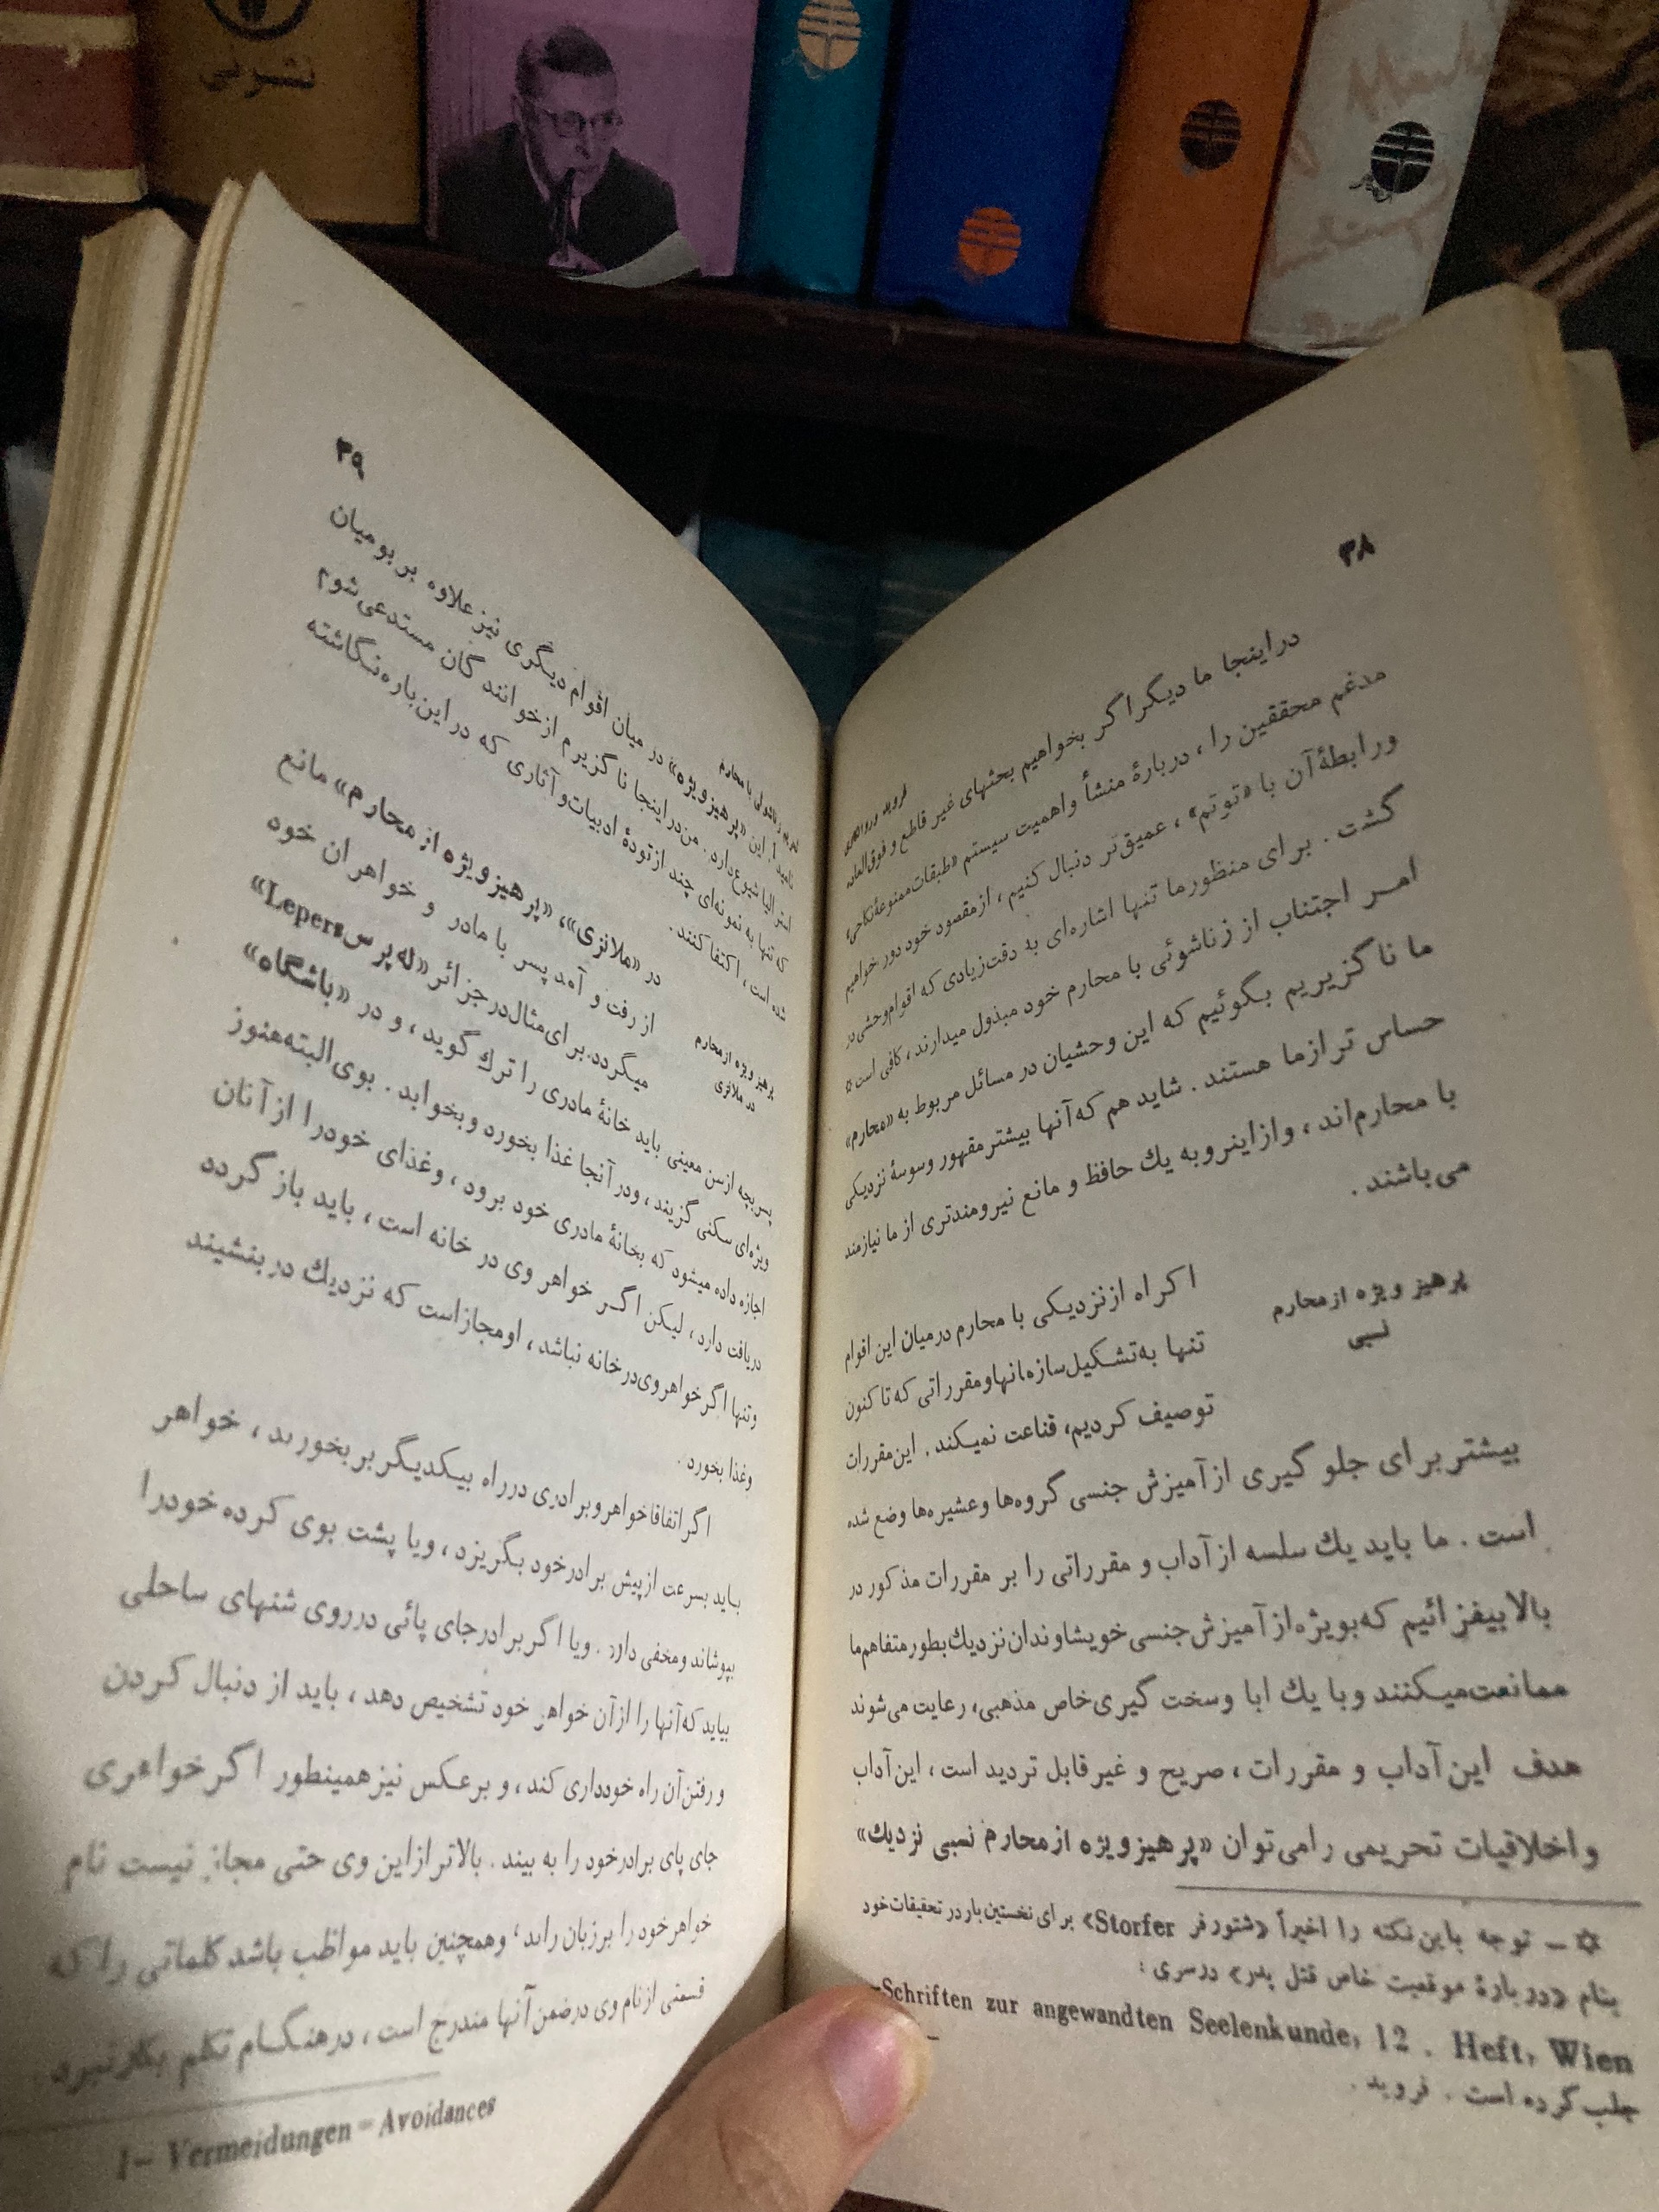 نشر نی
۳۸
در اینجا ما دیگر اگر بخواهیم بحثهای غیر قاطع و فوق‌العاده
مدغم محققین را ، دربارهٔ منشأ و اهمیت سیستم «طبقات ممنوعهٔ نکاحی»
و رابطهٔ آن با «توتم» ، عمیق‌تر دنبال کنیم ، از مقصود خود دور خواهیم
گشت . برای منظور ما تنها اشاره‌ای به دقت زیادی که اقوام وحشی در
امر اجتناب از زناشوئی با محارم خود مبذول میدارند ، کافی است ✡
ما ناگزیریم بگوئیم که این وحشیان در مسائل مربوط به «محارم»
حساس تر از ما هستند . شاید هم که آنها بیشتر مقهور وسوسهٔ نزدیکی
با محارم‌اند ، و از اینرو به یك حافظ و مانع نیرومندتری از ما نیازمند
می‌باشند .
پرهیز ویژه از محارم
نسبی
اکراه از نزدیکی با محارم در میان این اقوام
تنها به تشکیل سازمانها و مقرراتی که تا کنون
توصیف کردیم، قناعت نمیکند . این مقررات
بیشتر برای جلو گیری از آمیزش جنسی گروه‌ها و عشیره‌ها وضع شده
است . ما باید یك سلسه از آداب و مقرراتی را بر مقررات مذکور در
بالا بیفزائیم که بویژه از آمیزش جنسی خویشاوندان نزدیك بطور متفاهم ما
ممانعت میکنند و با یك ابا و سخت گیری خاص مذهبی، رعایت می‌شوند
هدف این آداب و مقررات ، صریح و غیر قابل تردید است ، این آداب
و اخلاقیات تحریمی را می‌توان «پرهیز ویژه از محارم نسبی نزدیك»
✡ – توجه باین نکته را اخیراً «شتورفر Storfer» برای نخستین بار در تحقیقات خود
بنام «دربارهٔ موقعیت خاص قتل پدر» در سری :
-Schriften zur angewandten Seelenkunde, 12 . Heft, Wien
–
جلب کرده است . فروید .
۳۹
نامید ۱. این «پرهیز ویژه» در میان اقوام دیگری نیز علاوه بر بومیان
استرالیا شیوع دارد . من در اینجا ناگزیرم از خوانندگان مستدعی شوم
که تنها به نمونه‌ای چند از تودهٔ ادبیات و آثاری که در این باره نگاشته
شده است ، اکتفا کنند .
پرهیز ویژه از محارم
در ملانزی
در «ملانزی»، «پرهیز ویژه از محارم» مانع
از رفت و آمد پسر با مادر و خواهران خود
میگردد. برای مثال در جزائر «له‌پرس Lepers»
پسر بچه از سن معینی باید خانهٔ مادری را ترك گوید ، و در «باشگاه»
ویژه‌ای سکنی گزیند ، و در آنجا غذا بخورد و بخوابد . بوی البته هنوز
اجازه داده میشود که بخانهٔ مادری خود برود ، و غذای خود را از آنان
دریافت دارد ، لیکن اگر خواهر وی در خانه است ، باید باز گردد
و تنها اگر خواهر وی در خانه نباشد ، او مجاز است که نزدیك در بنشیند
و غذا بخورد .
اگر اتفاقا خواهر و برادری در راه بیکدیگر بر بخورند ، خواهر
باید بسرعت از پیش برادر خود بگریزد ، و یا پشت بوی کرده خود را
بپوشاند و مخفی دارد . و یا اگر برادر جای پائی در روی شنهای ساحلی
بیابد که آنها را از آن خواهر خود تشخیص دهد ، باید از دنبال کردن
و رفتن آن راه خودداری کند ، و برعکس نیز همینطور اگر خواهری
جای پای برادر خود را به بیند . بالاتر از این وی حتی مجاز نیست نام
خواهر خود را بر زبان راند ، و همچنین باید مواظب باشد کلماتی را که
قسمتی از نام وی در ضمن آنها مندرج است ، در هنگام تکلم بکار نبرد
1- Vermeidungen = Avoidances